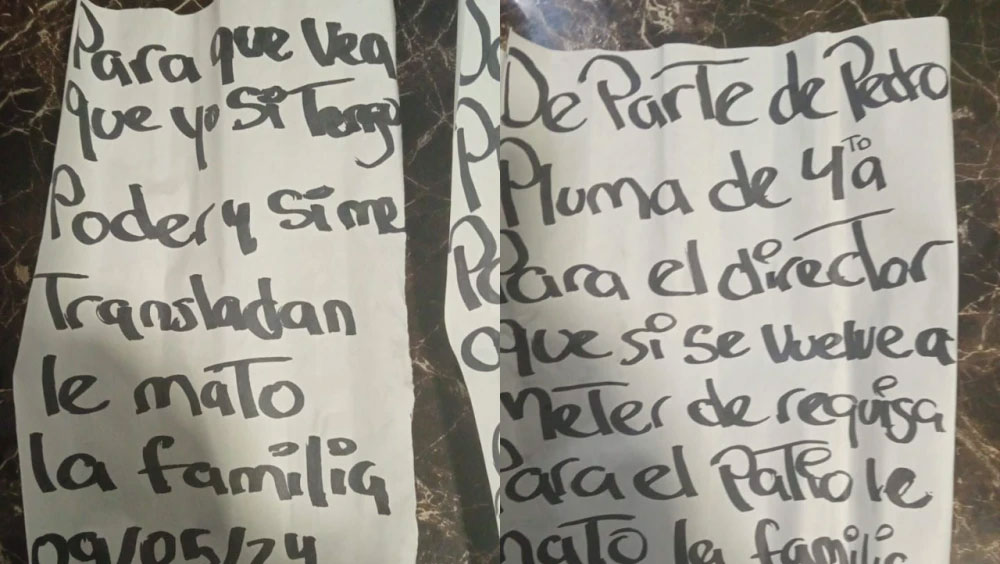 Para que vea
que yo si Tengo
Poder y si me
Transladan
le mato
la familia
09/05/24
De Parte de Pedro
Pluma de 4ta
Para el director
que si se vuelve a
meter de requisa
Para el Patio le
mato la familia